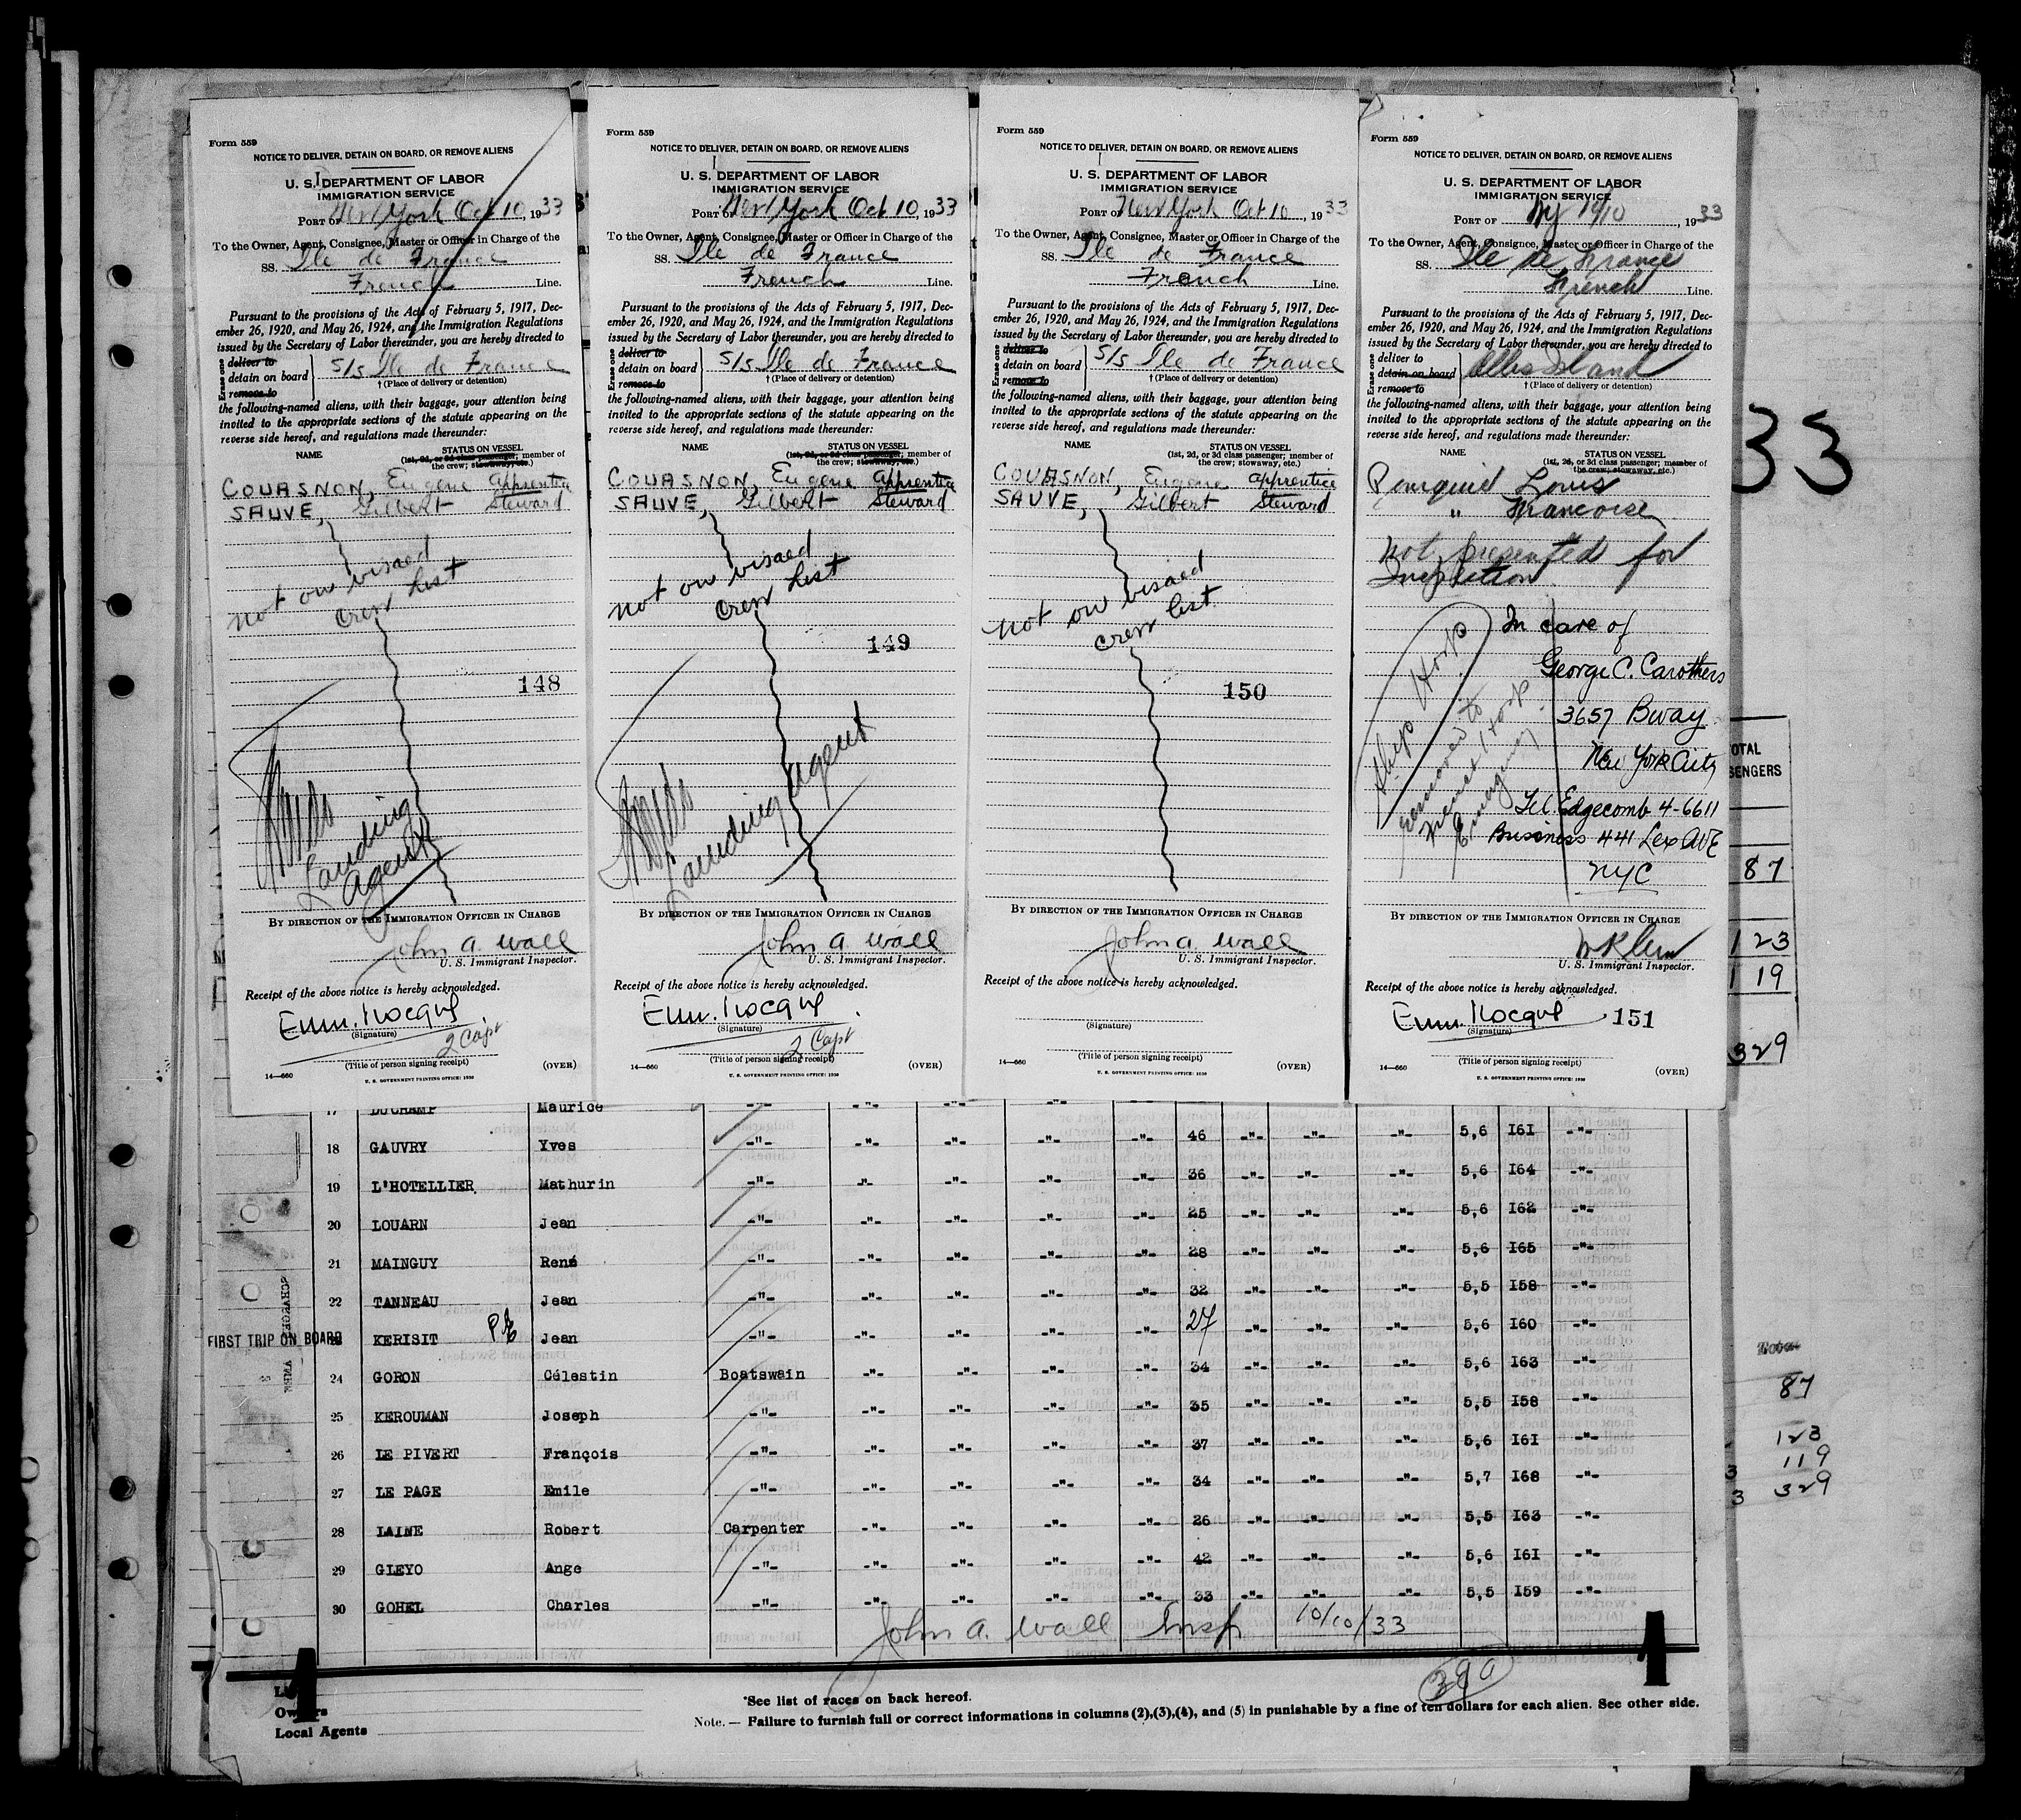 Form 559
NOTICE TO DELIVER, DETAIN ON BOARD, OR REMOVE ALIENS
U. S. DEPARTMENT OF LABOR
IMMIGRATION SERVICE
PORT OF New York Oct 10, 1933
To the Owner, Agent, Consignee, Master or Officer in Charge of the
SS. Ile de France
French
Pursuant to the provisions of the Acts of February 5, 1917, Dec-
ember 26, 1920, and May 26, 1924, and the Immigration Regulations
issued by the Secretary of Labor thereunder, you are hereby directed to
Erase one
deliver to
detain on board
remove to
S/S Ile de France
† (Place of delivery or detention)
the following-named aliens, with their baggage, your attention being
invited to the appropriate sections of the statute appearing on the
reverse side hereof, and regulations made thereunder:
NAME STATUS ON VESSEL
(1st, 2d, or 3d class passenger; member of
the crew; stowaway, etc.)
COUASNON, Eugene apprentice
SAUVE, Gilbert Steward
not on visaed
crew list
148
Landing
agent
BY DIRECTION OF THE IMMIGRATION OFFICER IN CHARGE
John A. Wall
U. S. Immigrant Inspector.
Receipt of the above notice is hereby acknowledged.
Emm. Rocque
(Signature)
2 Capt
(Title of person signing receipt)
14—660 (OVER)
U. S. GOVERNMENT PRINTING OFFICE: 1930
Form 559
NOTICE TO DELIVER, DETAIN ON BOARD, OR REMOVE ALIENS
U. S. DEPARTMENT OF LABOR
IMMIGRATION SERVICE
PORT OF New York Oct 10, 1933
To the Owner, Agent, Consignee, Master or Officer in Charge of the
SS. Ile de France
French Line.
Pursuant to the provisions of the Acts of February 5, 1917, Dec-
ember 26, 1920, and May 26, 1924, and the Immigration Regulations
issued by the Secretary of Labor thereunder, you are hereby directed to
Erase one
deliver to
detain on board
remove to
S/S Ile de France
† (Place of delivery or detention)
the following-named aliens, with their baggage, your attention being
invited to the appropriate sections of the statute appearing on the
reverse side hereof, and regulations made thereunder:
NAME STATUS ON VESSEL
(1st, 2d, or 3d class passenger; member of
the crew; stowaway, etc.)
COUASNON, Eugene apprentice
SAUVE, Gilbert Steward
not on visaed
crew list
149
Landing agent
BY DIRECTION OF THE IMMIGRATION OFFICER IN CHARGE
John A. Wall
U. S. Immigrant Inspector.
Receipt of the above notice is hereby acknowledged.
Emm. Rocque
(Signature)
2 Capt
(Title of person signing receipt)
14—660 (OVER)
U. S. GOVERNMENT PRINTING OFFICE: 1930
Form 559
NOTICE TO DELIVER, DETAIN ON BOARD, OR REMOVE ALIENS
U. S. DEPARTMENT OF LABOR
IMMIGRATION SERVICE
PORT OF New York Oct 10, 1933
To the Owner, Agent, Consignee, Master or Officer in Charge of the
SS. Ile de France
French Line.
Pursuant to the provisions of the Acts of February 5, 1917, Dec-
ember 26, 1920, and May 26, 1924, and the Immigration Regulations
issued by the Secretary of Labor thereunder, you are hereby directed to
Erase one
deliver to
detain on board
remove to
S/S Ile de France
† (Place of delivery or detention)
the following-named aliens, with their baggage, your attention being
invited to the appropriate sections of the statute appearing on the
reverse side hereof, and regulations made thereunder:
NAME STATUS ON VESSEL
(1st, 2d, or 3d class passenger; member of
the crew; stowaway, etc.)
COUASNON, Eugene apprentice
SAUVE, Gilbert Steward
not on visaed
crew list
150
BY DIRECTION OF THE IMMIGRATION OFFICER IN CHARGE
John A. Wall
U. S. Immigrant Inspector.
Receipt of the above notice is hereby acknowledged.
(Signature)
(Title of person signing receipt)
14—660 (OVER)
U. S. GOVERNMENT PRINTING OFFICE: 1930
Form 559
NOTICE TO DELIVER, DETAIN ON BOARD, OR REMOVE ALIENS
U. S. DEPARTMENT OF LABOR
IMMIGRATION SERVICE
PORT OF NY 10/10, 1933
To the Owner, Agent, Consignee, Master or Officer in Charge of the
SS. Ile de France
French Line.
Pursuant to the provisions of the Acts of February 5, 1917, Dec-
ember 26, 1920, and May 26, 1924, and the Immigration Regulations
issued by the Secretary of Labor thereunder, you are hereby directed to
Erase one
deliver to
detain on board
remove to
Ellis Island
† (Place of delivery or detention)
the following-named aliens, with their baggage, your attention being
invited to the appropriate sections of the statute appearing on the
reverse side hereof, and regulations made thereunder:
NAME STATUS ON VESSEL
(1st, 2d, or 3d class passenger; member of
the crew; stowaway, etc.)
Louis
" Francoise
not presented for
Inspection
Ship Hosp
removed to
nearest Hosp
Emergency
In care of
George C. Carothers
3657 Bway
New York City
Tel. Edgecomb 4-6611
Business 441 Lex AVE
NYC
BY DIRECTION OF THE IMMIGRATION OFFICER IN CHARGE
U. S. Immigrant Inspector.
Receipt of the above notice is hereby acknowledged.
Emm. Rocque 151
(Signature)
(Title of person signing receipt)
14—660 (OVER)
U. S. GOVERNMENT PRINTING OFFICE: 1930
33
OTAL
SENGERS
87
123
119
329
17 DUCHAMP Maurice -"- -"- -"- -"- -"-
18 GAUVRY Yves -"- -"- -"- -"- -"- 46 -"- -"- -"- 5,6 I6I -"-
19 L'HOTELLIER Mathurin -"- -"- -"- -"- -"- 36 -"- -"- -"- 5,6 I64 -"-
20 LOUARN Jean -"- -"- -"- -"- -"- 25 -"- -"- -"- 5,6 I62 -"-
21 MAINGUY René -"- -"- -"- -"- -"- 28 -"- -"- -"- 5,6 I65 -"-
22 TANNEAU Jean -"- -"- -"- -"- -"- 32 -"- -"- -"- 5,5 I58 -"-
FIRST TRIP ON BOARD KERISIT Jean -"- -"- -"- -"- -"- 27 -"- -"- -"- 5,6 I60 -"-
24 GORON Célestin Boatswain -"- -"- -"- -"- 34 -"- -"- -"- 5,6 I63 -"-
25 KEROUMAN Joseph -"- -"- -"- -"- -"- 35 -"- -"- -"- 5,5 I58 -"-
26 LE PIVERT François -"- -"- -"- -"- -"- 37 -"- -"- -"- 5,6 I6I -"-
27 LE PAGE Emile -"- -"- -"- -"- -"- 34 -"- -"- -"- 5,7 I68 -"-
28 LAINE Robert Carpenter -"- -"- -"- -"- 26 -"- -"- -"- 5,5 I63 -"-
29 GLEYO Ange -"- -"- -"- -"- -"- 42 -"- -"- -"- 5,6 I6I -"-
30 GOHEL Charles -"- -"- -"- -"- -"- 33 -"- -"- -"- 5,5 I59 -"-
John A. Wall Insp 10/10/33
87
123
3 119
3 329
Owners
Local Agents
*See list of races on back hereof.
Note. — Failure to furnish full or correct informations in columns (2),(3),(4), and (5) in punishable by a fine of ten dollars for each alien. See other side.